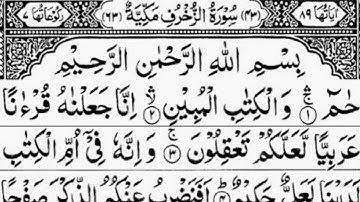 اٰيَاتُهَا ٨٩ (٤٣) سُوْرَةُ الزُّخْرُفِ مَكِّيَّةٌ (٦٣) رُكُوْعَاتُهَا ٧
بِسْمِ اللّٰهِ الرَّحْمٰنِ الرَّحِيْمِ
حٰمٓ ۚ ١ وَالْكِتٰبِ الْمُبِيْنِ ۙ ٢ اِنَّا جَعَلْنٰهُ قُرْءٰنًا
عَرَبِيًّا لَّعَلَّكُمْ تَعْقِلُوْنَ ۚ ٣ وَاِنَّهٗ فِيْٓ اُمِّ الْكِتٰبِ
لَدَيْنَا لَعَلِيٌّ حَكِيْمٌ ؕ ٤ اَفَنَضْرِبُ عَنْكُمُ الذِّكْرَ صَفْحًا